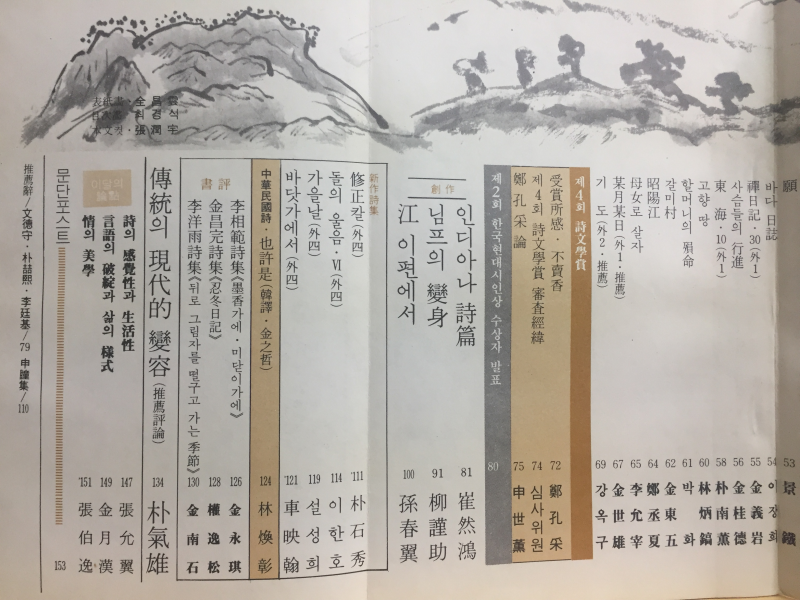 表紙畵·全昌雲
目次畵·최경석
水文컷·張潤宇
願 53 景鐵
바다 日誌 54 이장희
禪日記·30(外1) 55 金義岩
사슴들의 行進 56 金桂德
東海·10(外1) 58 朴南薰
고향 땅 60 林炳鎬
할머니의 殞命 61 박화
갈미村 62 金東五
昭陽江 64 鄭丞夏
母女로 살자 65 李允宰
某月某日(外1·推薦) 67 金世雄
기도(外2·推薦) 69 강옥구
제4회 詩文學賞
受賞所感·不賣香 72 鄭孔采
제4회 詩文學賞 審査經緯 74 심사위원
鄭孔采論 75 申世薰
제2회 한국현대시인상 수상자 발표 80
創作
인디아나 詩篇 81 崔然鴻
님프의 變身 91 柳謹助
江 이편에서 100 孫春翼
新作詩集
修正칼(外四) 111 朴石秀
돌의 울음·Ⅵ(外四) 114 이한호
가을날(外四) 119 설성희
바닷가에서(外四) 121 車映翰
中華民國詩·也許是(韓譯·金之哲) 124 林煥彰
書評
李相範詩集《墨香가에·미닫이가에》 126 金永琪
金昌完詩集《忍冬日記》 128 權逸松
李洋雨詩集《뒤로 그림자를 떨구고 가는 季節》 130 金南石
傳統의 現代的 變容(推薦評論) 134 朴氣雄
이달의 論點
詩의 感覺性과 生活性 147 張允翼
言語의 破綻과 삶의 樣式 149 金月漢
情의 美學 151 張伯逸
문단포스트 153
推薦辭/文德守·朴喆熙·李廷基/79 申瞳集/110